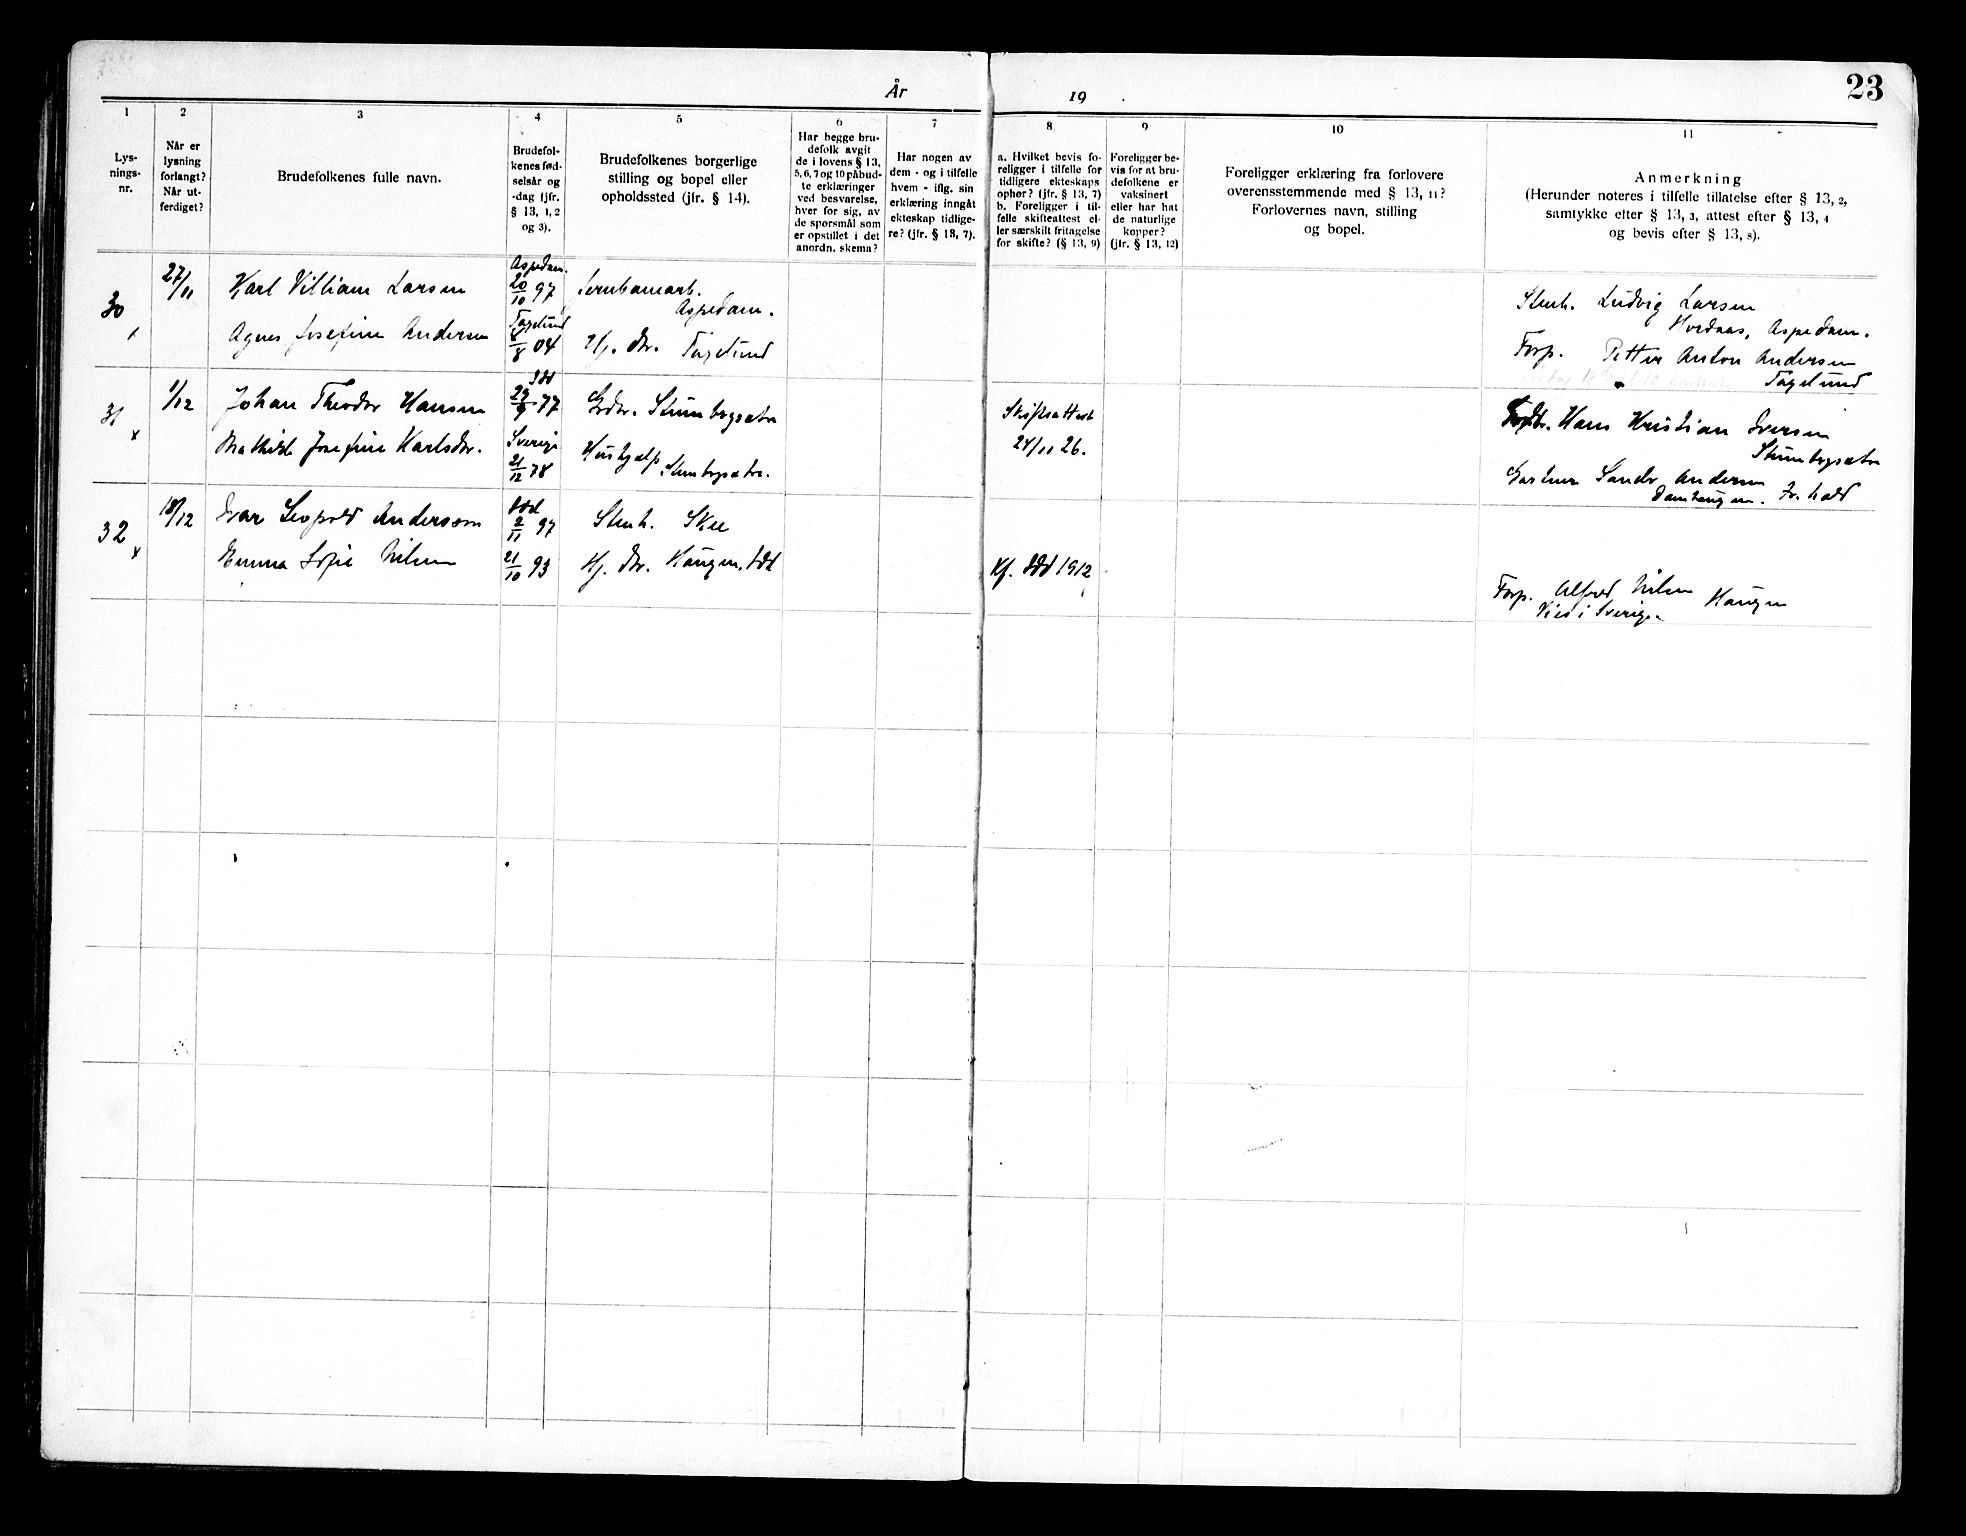 År 19
23
1
Lys-
nings-
nr.
2
Når er
lysning
forlangt?
Når ut-
ferdiget?
3
Brudefolkenes fulle navn.
4
Brudefol-
kenes fød-
selsår og
-dag (jfr.
§ 13, 1, 2
og 3).
5
Brudefolkenes borgerlige
stilling og bopel eller
opholdssted (jfr. § 14).
6
Har begge bru-
defolk avgit
de i lovens § 13,
5, 6, 7 og 10 påbud-
te erklæringer
ved besvarelse,
hver for sig, av
de spørsmål som
er opstillet i det
anordn. skema?
7
Har nogen av
dem - og i tilfelle
hvem - iflg. sin
erklæring inngåt
ekteskap tidlige-
re? (jfr. § 18, 7).
8
a. Hvilket bevis fo-
religger i tilfelle for
tidligere ekteskaps
ophør? (jfr. § 13, 7)
b. Foreligger i til-
felle skifteattest el-
ler særskilt fritagelse
for skifte? (§ 13, 9)
9
Foreligger be-
vis for at bru-
defolkene er
vaksinert
eller har hat
de naturlige
kopper?
(jfr. § 13, 12)
10
Foreligger erklæring fra forlovere
overensstemmende med § 13, 11?
Forlovernes navn, stilling
og bopel.
11
Anmerkning
(Herunder noteres i tilfelle tillatelse efter § 13, 2,
samtykke efter § 13, 3, attest efter § 13, 4
og bevis efter § 13, 8).
30
27/11
Karl Villiam Larsen
Aspedam.
20/10 97
Jernbanearb.
Aspedam.
Stenh. Ludvig Larsen
Hvedaas, Aspedam.
Agnes Josefine Andersen
Fagelund
8/8 04
Hj. dtr. Fagelund
Forp. Petter Anton Andersen
Fagelund
31
x
1/12
Johan Theodor Hansen
Idd
29/9 77
Grdbr. Stumbergsæter
Skifteattest
24/11 26.
Hans Kristian Iversen
Stumbergsæter
Mathilde Josefine Karlsdtr.
Sverige
21/12 78
Hushjelp
Stumbergsæter.
Gartner Sander Andersen
Damhaugen. Fr.hald
32
x
18/12
Ivar Leopold Andersson
Idd
2/11 97
Stenh. Skee
Emma Sofie Nilsen
21/10 93
Hj. dtr. Haugen, Idd
Kf. Idd 1912
Forp. Alfred Nilsen Haugen
Viet i Sverige